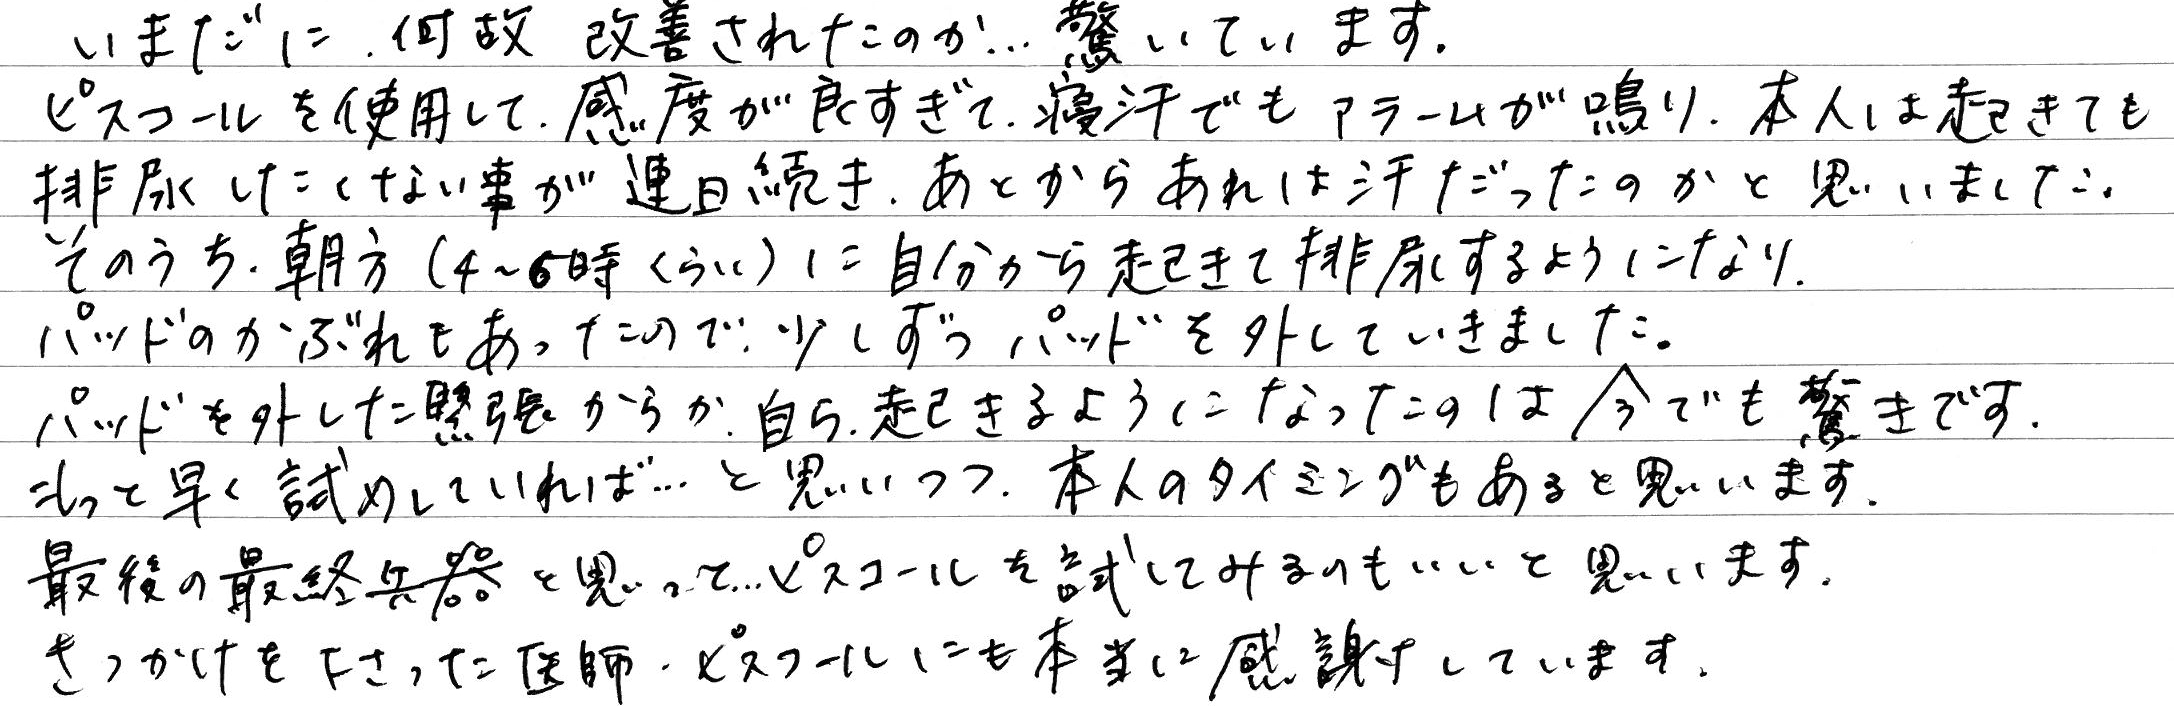 いまだに、何故 改善されたのか… 驚いています。
ピスコールを使用して、感度が良すぎて、寝汗でも アラームが鳴り、本人は起きても
排尿したくない事が連日続き、あとからあれは汗だったのかと思いました。
そのうち、朝方(4~6時くらい)に自分から起きて排尿するようになり、
パッドのかぶれもあったので、少しずつパッドを外していきました。
パッドを外した緊張からか、自ら、起きるようになったのは今でも驚きです。
もっと早く試めしていれば…と思いつつ、本人のタイミングもあると思います。
最後の最終兵器と思って…ピスコールを試してみるのもいいと思います。
きっかけを下さった医師・ピスコールにも本当に感謝しています。